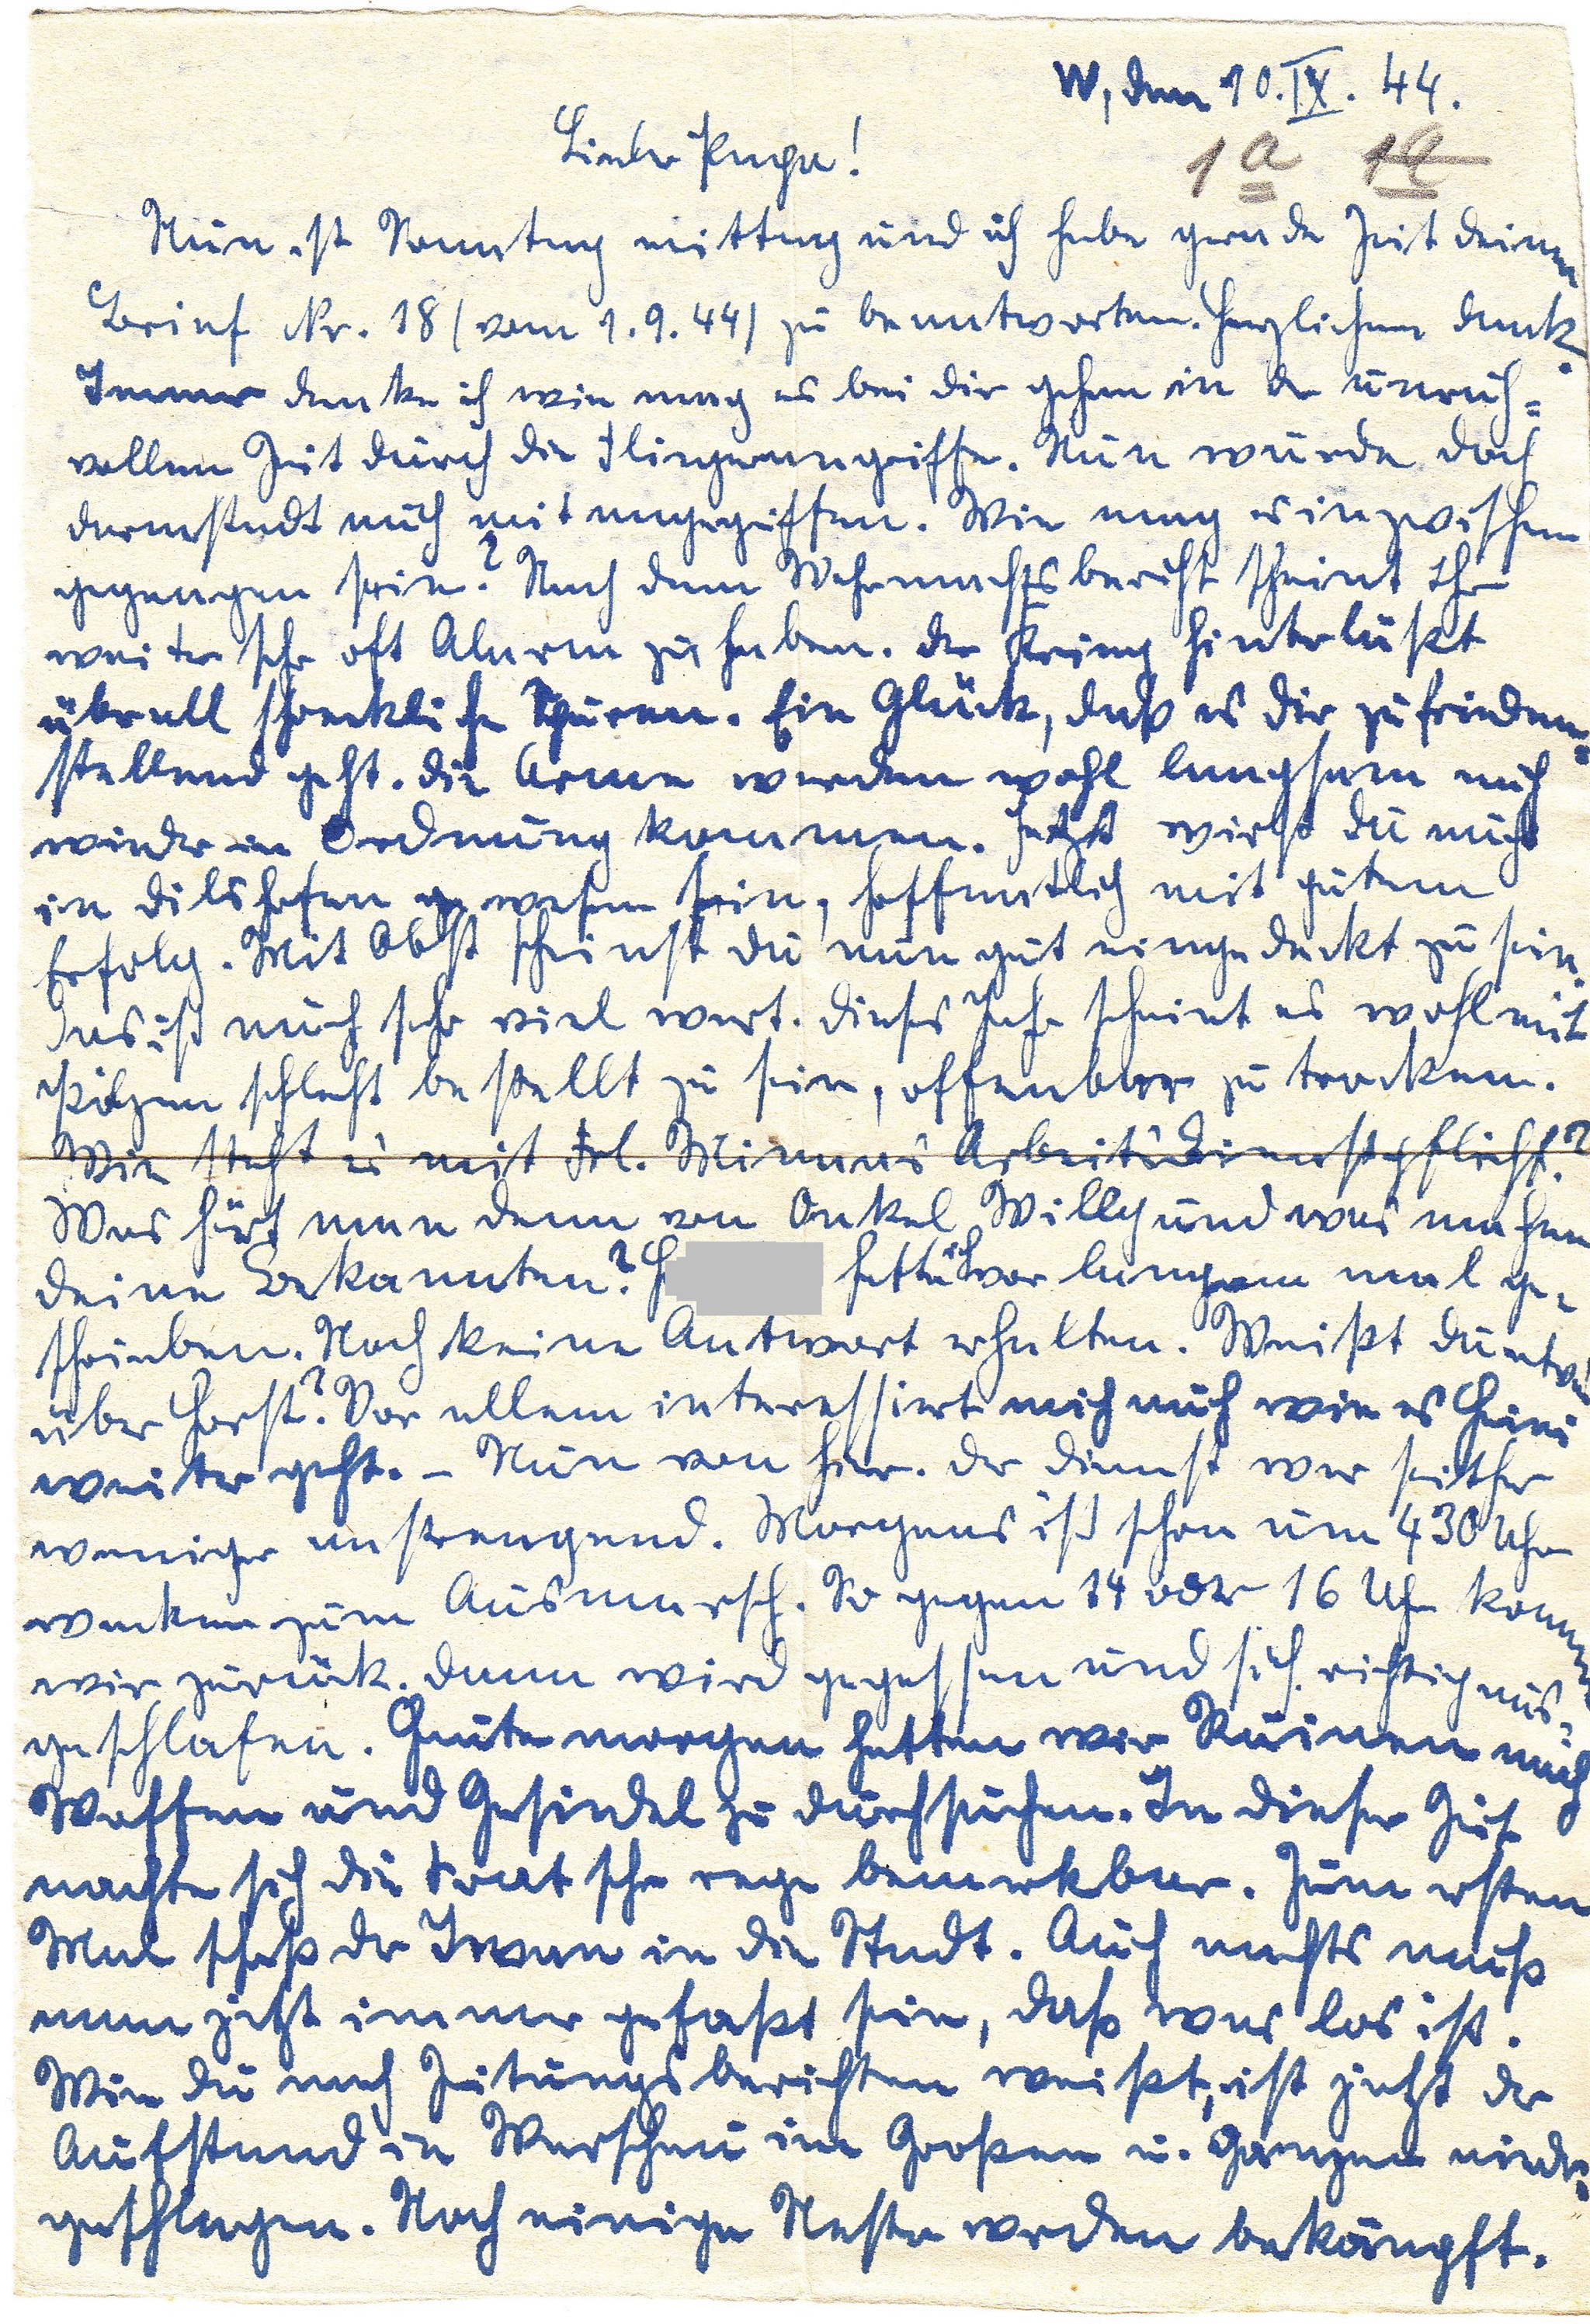 W, den 10.IX. 44.
1a 1a
Lieber Papa!
Nun ist Sonntag mittag und ich habe gerade Zeit deinen
Brief Nr. 18 (vom 1.9.44) zu beantworten. Herzlichen Dank.
Immer denke ich wie mag es bei dir gehen in der unruh=
vollen Zeit durch die Fliegerangriffe. Nun wurde doch
Darmstadt auch mit angegriffen. Wie mag es inzwischen
gegangen sein? Nach dem Wehrmachtsbericht scheint Ihr
weiter sehr oft Alarm zu haben. Der Krieg hinterläßt
überall schreckliche Spuren. Ein Glück, daß es dir zufrieden=
stellend geht. Die Arme werden wohl langsam auch
wieder in Ordnung kommen. Jetzt wirst du auch
in Dilshofen gewesen sein, hoffentlich mit gutem
Erfolg. Mit Obst scheinst du nun gut eingedeckt zu sein.
Das ist auch sehr viel wert. Dieses Jahr scheint es wohl mit
Pilzen schlecht bestellt zu sein, offenbar zu trocken.
Wie steht es mit Frl. Minnas Arbeitsdienstpflicht?
Was hört man denn von Onkel Willy und was machen
deine Bekannten? H hatte ich vor langem mal ge=
schrieben. Noch keine Antwort erhalten. Weißt du etwas
über Horst? Vor allem interessiert mich auch wie es Heini
weiter geht. – Nun von hier. Der Dienst war seither
weniger anstrengend. Morgens ist schon um 430 Uhr
wecken zum Ausmarsch. So gegen 14 oder 16 Uhr kommen
wir zurück. Dann wird gegessen und sich richtig aus=
geschlafen. Heute morgen hatten wir Ruinen nach
Waffen und Gesindel zu durchsuchen. In dieser Zeit
machte sich die Front sehr rege bemerkbar. Zum ersten
Mal schoß der Iwan in die Stadt. Auch nachts muß
man jetzt immer gefaßt sein, daß was los ist.
Wie du nach Zeitungsberichten weißt, ist jetzt der
Aufstand in Warschau im Großen u. Ganzen nieder=
geschlagen. Noch einige Nester werden bekämpft.